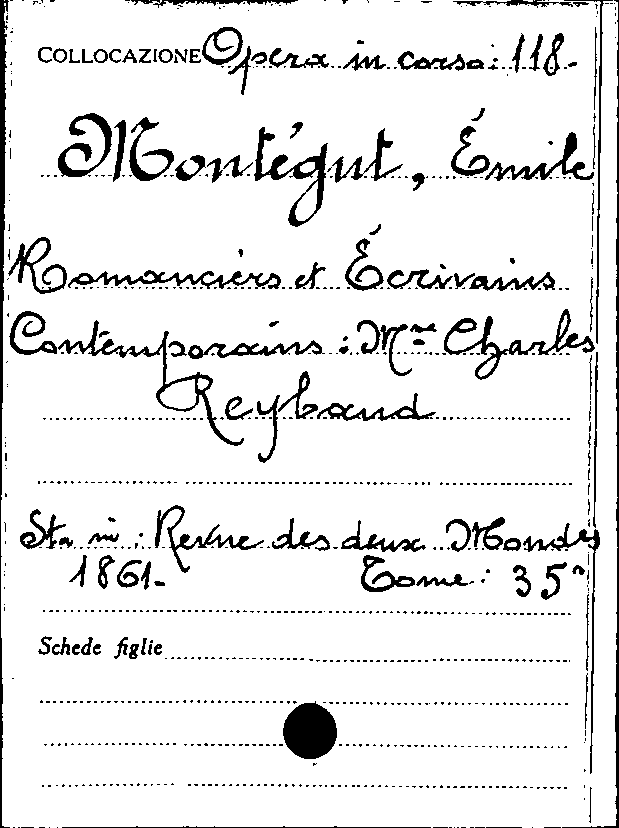 COLLOCAZIONE Opera in corso: 118.
Montégut, Émile
Romanciers et Écrivains
Contemporains: Mme Charles
Reybaud
Sta in: Revue des deux Mondes
1861. Tome: 35°
Schede figlie